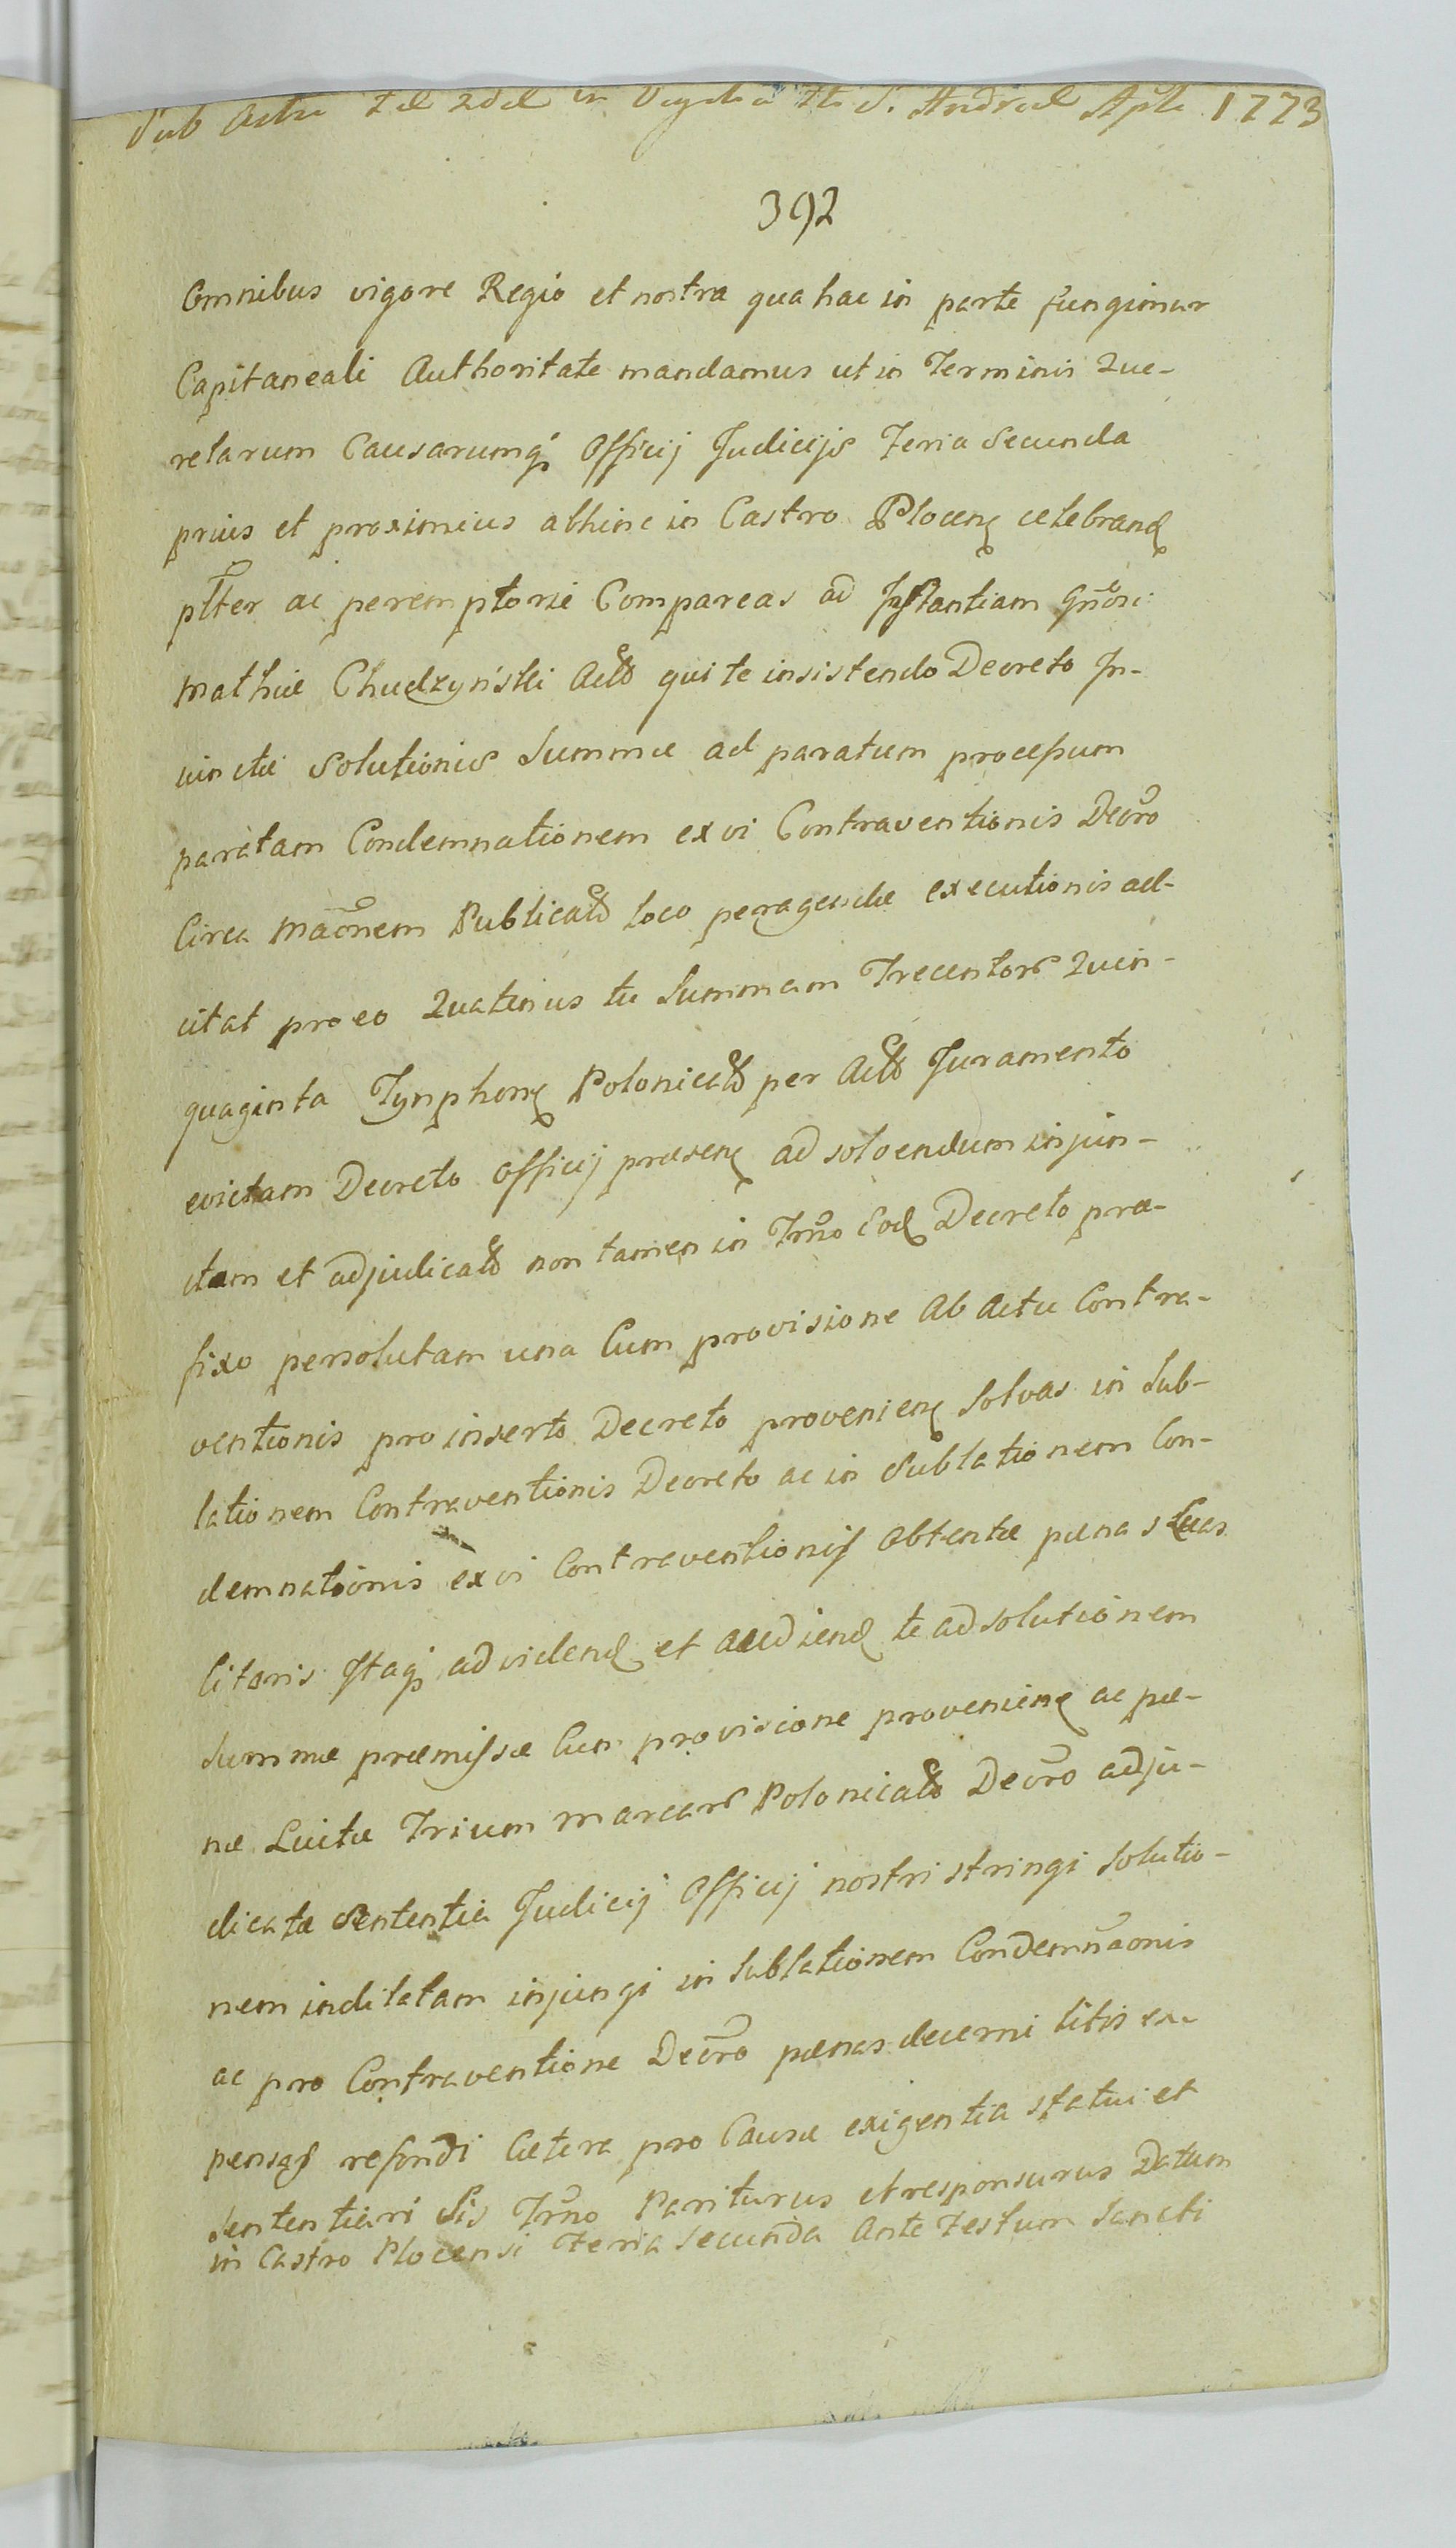 Sub Actu Fae 2dae in Vigilia Fti S. Andreae Apli 1773
392
Omnibus vigore Regio et nostra qua hac in parte fungimur
Capitaneali Authoritate mandamus ut in Terminis Que-
relarum Causarumq; Officij Judicijs Feria Secunda
prius et proximius abhinc in Castro Plocen celebrand
ptter ac peremptorie Compareas ad Instantiam Gnosi
Mathiae Chudzyński Act qui te insistendo Decreto In-
iunctae Solutionis Summae ad paratum processum
paratam Condemnationem ex vi Contraventionis Decro
Circa Maonem Publicat loco peragendae executionis ad-
citat pro eo Quatenus tu Summam Trecentor Quin-
quaginta Tynphon Polonical per Act Juramento
evictam Decreto Officij praesen ad solvendum injun-
ctam et adjudicat non tamen in Trno Eod Decreto prae-
fixo persolutam una Cum provisione Ab Actu Contra-
ventionis pro inserto Decreto provenien Solvas in Sub-
lationem Contraventionis Decreto ac in Sublationem Con-
demnationis ex vi Contraventionis Obtentae paenas Luas
litaris Itaq; ad vidend et audiend te ad solutionem
Summae praemissae Cum provisione provenien ac pae-
nae Luitae Trium marcar Polonical Decro adju-
dicatae Sententia Judicij Officij nostri stringi Solutio-
nem indilatam injungi in Sublationem Condemnaonis
ac pro Contraventione Decro paenas decerni litis ex-
pensas refundi Caetera pro Causae exigentia statui et
Sententiari Sis Trno Pariturus et responsurus Datum
in Castro Plocensi Feria Secunda Ante Festum Sancti